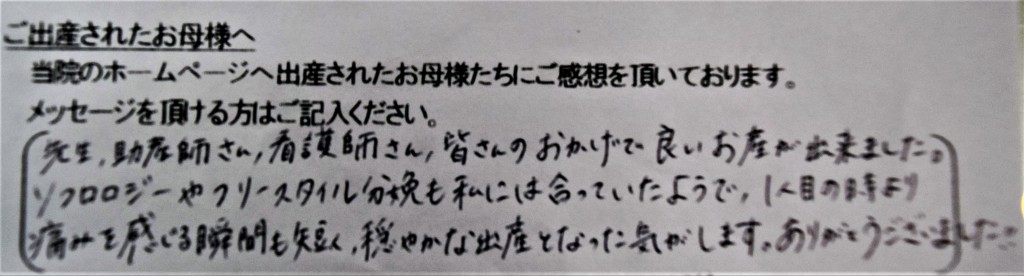 ご出産されたお母様へ
当院のホームページへ出産されたお母様たちにご感想を頂いております。
メッセージを頂ける方はご記入ください。
先生,助産師さん,看護師さん,皆さんのおかげで良いお産が出来ました。
ソフロロジーやフリースタイル分娩も私には合っていたようで,1人目の時より
痛みを感じる瞬間も短く,穏やかな出産となった気がします。ありがとうございました